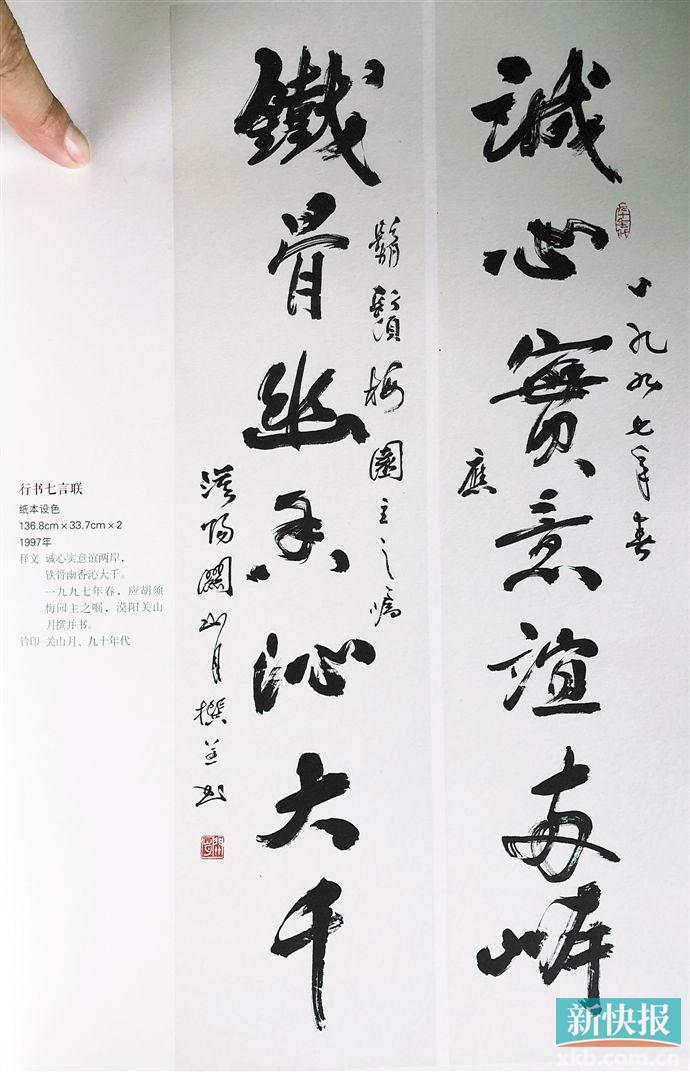 誠心實意誼兩岍
一九九七年春
應
鐵骨幽香沁大千
鬍鬚梅園主之囑
漠陽關山月撰並书
行书七言联
纸本设色
136.8cm×33.7cm×2
1997年
释文 诚心实意谊两岸，
铁骨幽香沁大千。
一九九七年春，应胡须
梅园主之嘱，漠阳关山
月撰并书。
钤印 关山月、九十年代
新快报
xkb.com.cn